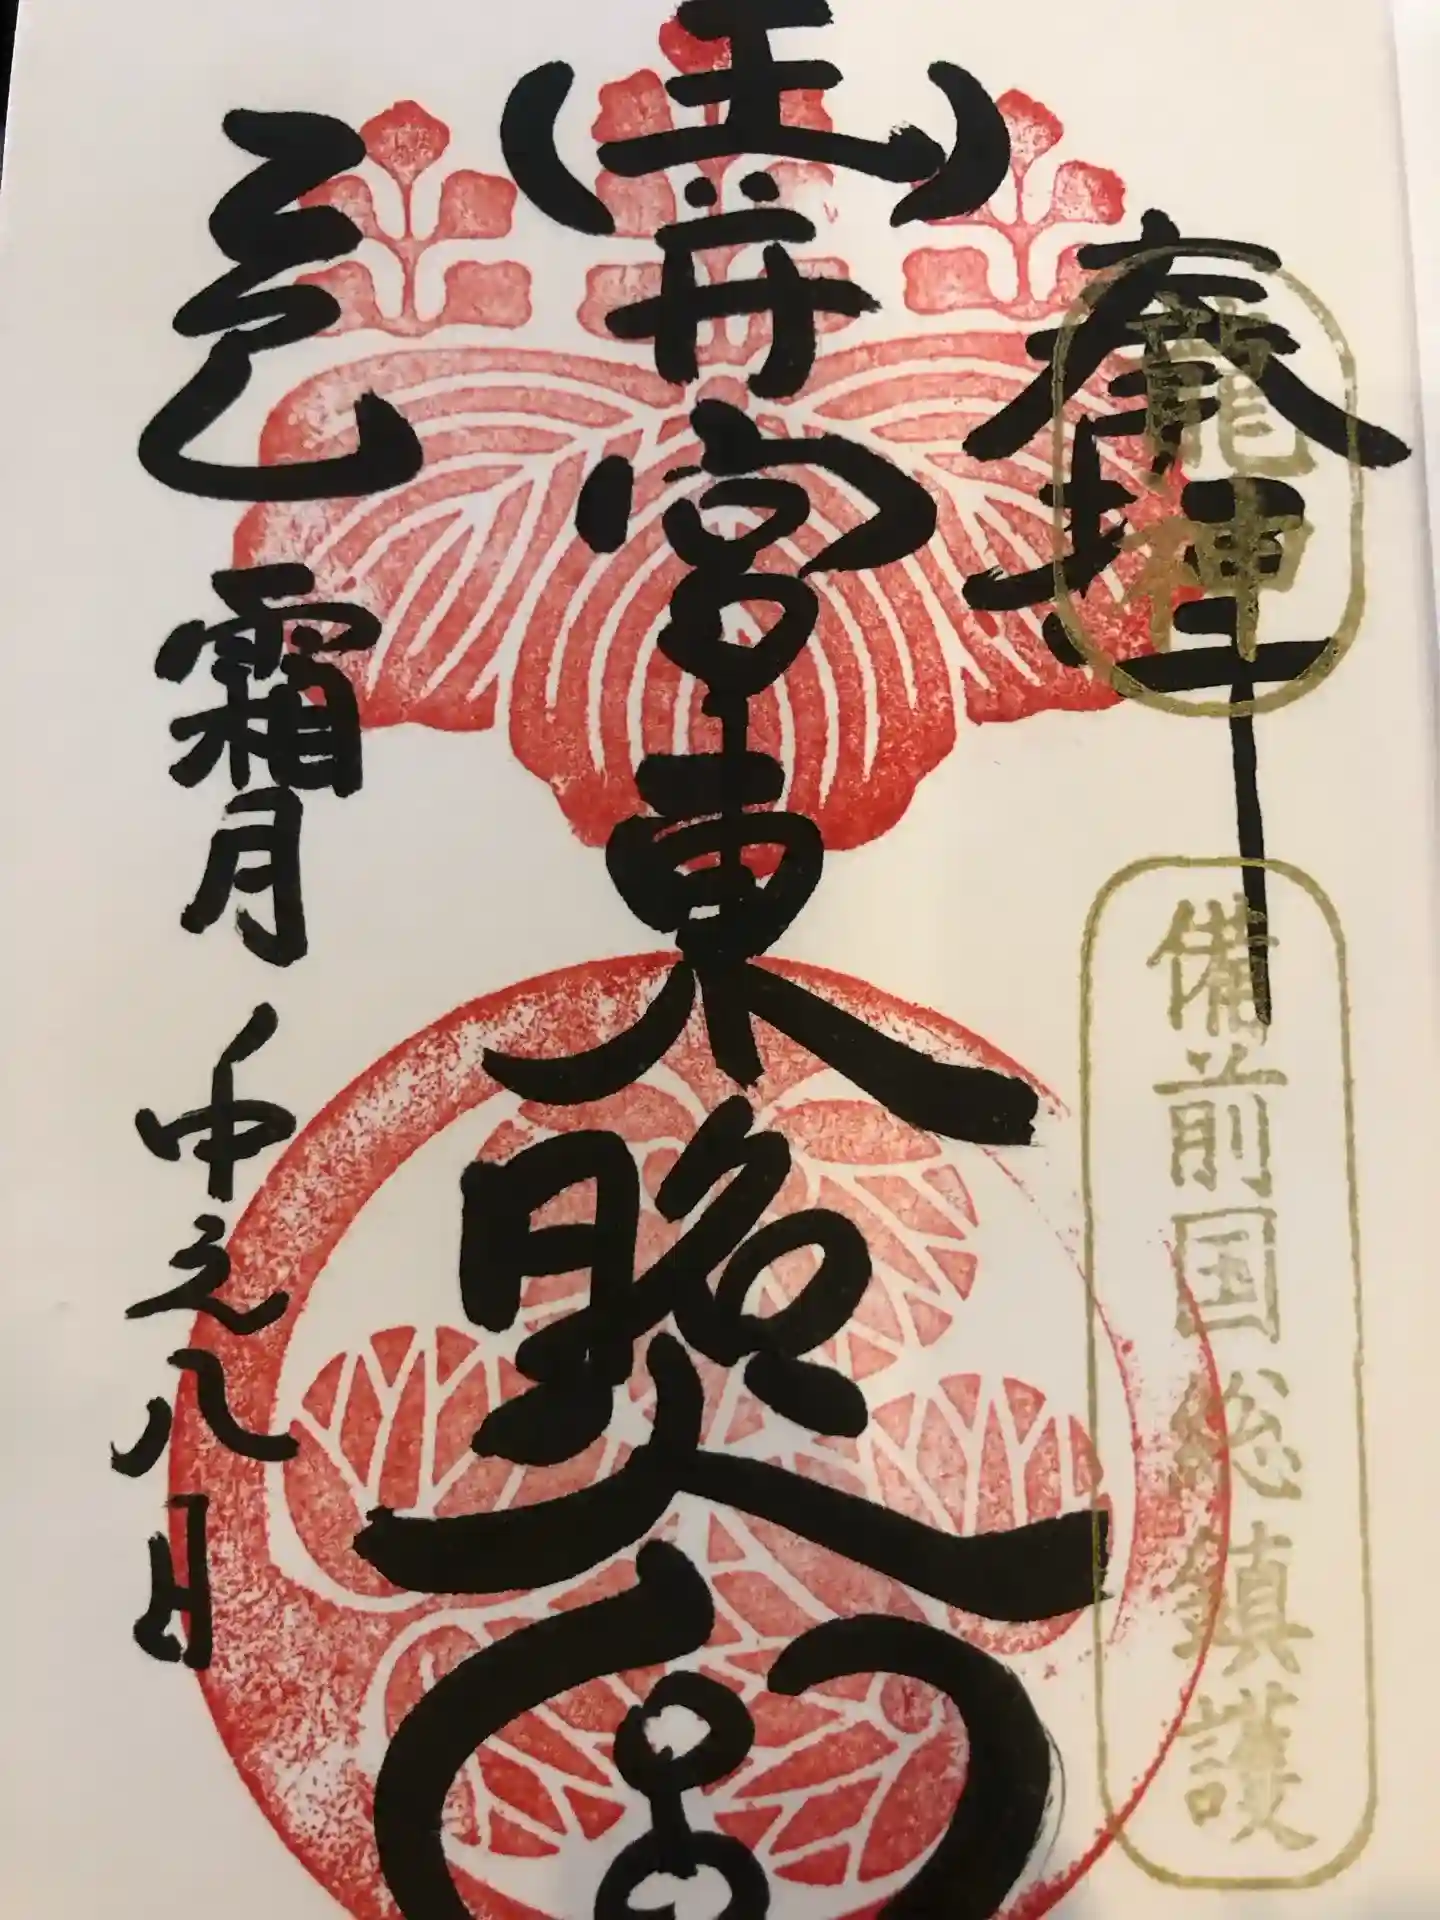 奉拝
龍神
備前国総鎮護
(玉井宮東照宮)
乙巳 霜月 中之八日